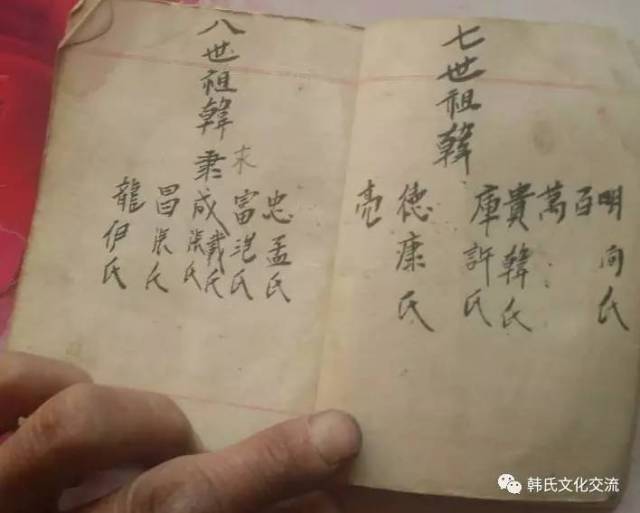 七世祖韓
明向氏
百
萬
貴韓氏
庫許氏
德康氏
亮
八世祖韓秉
忠孟氏
富范氏
成戴氏張氏
昌張氏
龍伊氏
韩氏文化交流